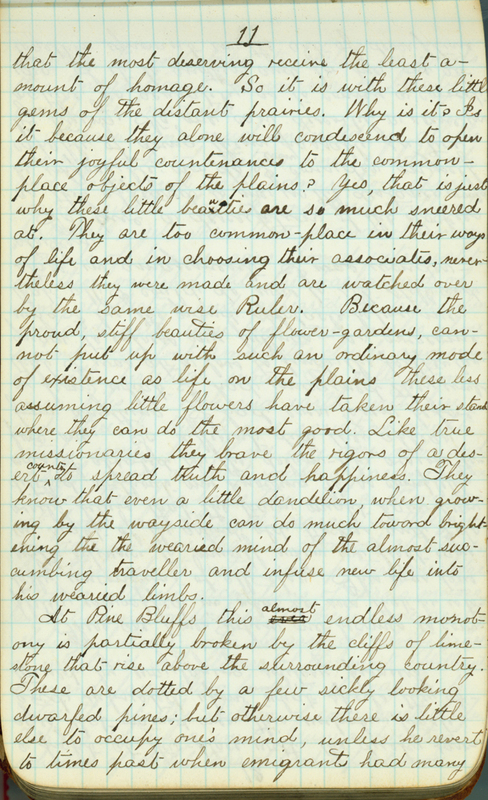 11
that the most deserving receive the least a-
mount of homage. So it is with these little
gems of the distant prairies. Why is it? Is
it because they alone will condescend to open
their joyful countenances to the common-
place objects of the plains? Yes, that is just
why these little beauties are so much sneered
at. They are too common-place in their ways
of life and in choosing their associates, never-
theless they were made and are watched over
by the same wise Ruler. Because the
proud, stiff beauties of flower-gardens, can-
not put up with such an ordinary mode
of existence as life on the plains these less
assuming little flowers have taken their stand
where they can do the most good. Like true
missionaries they brave the rigors of a des-
ert country to spread truth and happiness. They
know that even a little dandelion, when grow-
ing by the wayside can do much toward bright-
ening the the wearied mind of the almost suc-
cumbing traveller and infuse new life into
his wearied limbs.
At Pine Bluffs this almost endless monot-
ony is partially broken by the cliffs of lime-
stone that rise above the surrounding country.
These are dotted by a few sickly looking
dwarfed pines; but otherwise there is little
else to occupy one's mind, unless he revert
to times past when emigrants had many